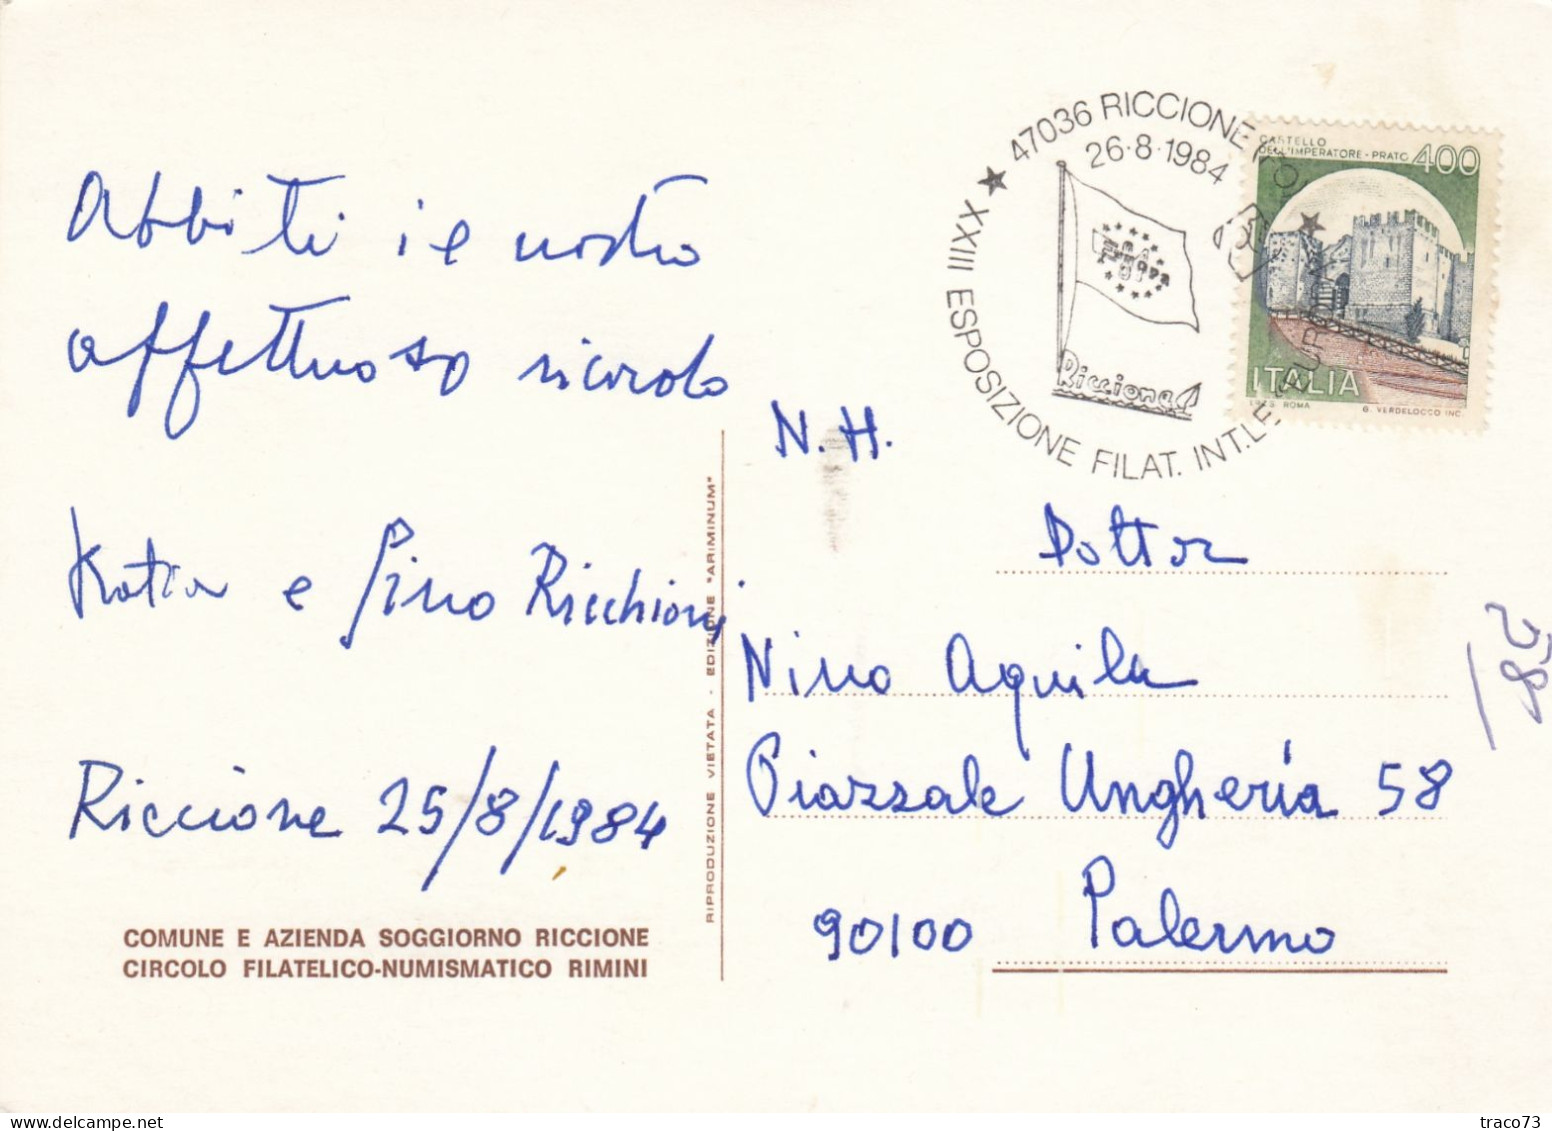 Abbiti il nostro
affettuoso ricordo
Katia e Gino Ricchioni
Riccione 25/8/1984
COMUNE E AZIENDA SOGGIORNO RICCIONE
CIRCOLO FILATELICO-NUMISMATICO RIMINI
RIPRODUZIONE VIETATA - EDIZIONE "ARIMINUM"
47036 RICCIONE
26·8·1984
XXIII ESPOSIZIONE FILAT. INT.LE
Europa
Riccione
CASTELLO
DELL'IMPERATORE - PRATO 400
ITALIA
I.P.Z.S. ROMA G. VERDELOCCO INC.
N.H.
Dottor
Nino Aquila
Piazzale Ungheria 58
90100 Palermo
traco73